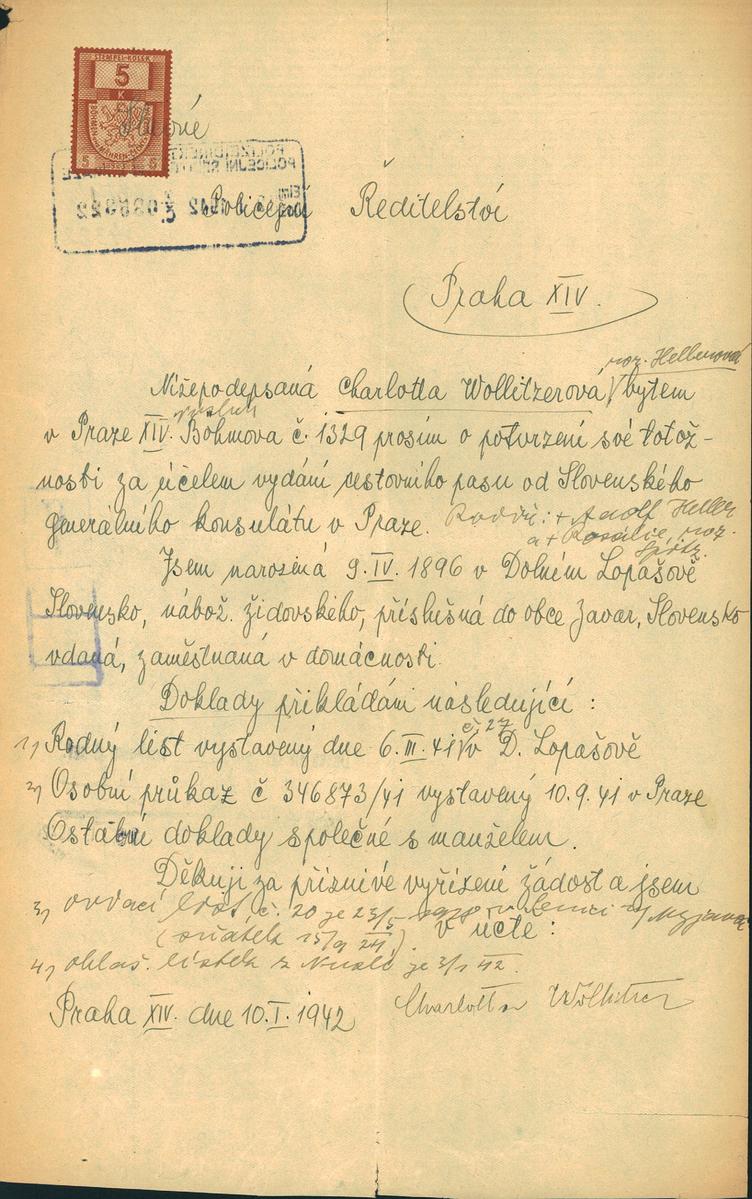 STEMPEL-KOLEK
5
K
BÖHMEN MÄHREN
5 5
Slavné
Policejní Ředitelství
Praha XIV.
roz. Hellerová
Nížepodepsaná Charlotta Wollitzerová bytem
v Praze XIV. Böhmova č. 1329 prosím o potvrzení své totož-
nosti za účelem vydání cestovního pasu od Slovenského
generálního konsulátu v Praze. Rodiči: + Adolf Heller
a + Rosalie roz.
Spitz.
Jsem narozená 9. IV. 1896 v Dolném Lopašově
Slovensko, nábož. židovského, příslušná do obce Zavar, Slovensko
vdaná, zaměstnaná v domácnosti.
Doklady přikládám následující :
č. 27
1) Rodný list vystavený dne 6. III. 41 v D. Lopašově
2) Osobní průkaz č 346873/41 vystavený 10.9.41 v Praze
Ostatné doklady společné s manželem.
Děkuji za příznivé vyřízené žádost a jsem
3) oddací list č. 20 ze 23/5 n/Myjava
(sňatek 15/9 21). v úctě :
4) ohlaš. lístek z Nuslí ze 3/1 42.
Praha XIV. dne 10. I. 1942 Charlotta Wollitzer